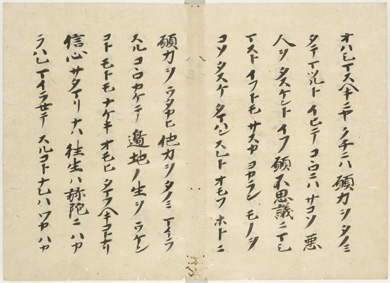 オハシマスヘキニヤ クチニハ 願力ヲ タノミ
タテマツルト イヒテ コヽロニハ サコソ 悪
人ヲ タスケント イフ 願不思議ニマシ
マストイフトモ サスカ ヨカラン モノヲ
コソ タスケ タマハンスレト オモフ ホトニ
願力ヲ ウタカヒ 他力ヲ タノミ マイラ
スル コヽロ カケテ 邊地ノ 生ヲ ウケン
コト モトモ ナケキ オモヒ タマフヘキコトナリ
信心 サタマリナハ 往生ハ 弥陀ニ ハカ
ラハレ マイラセテ スルコトナレハ ワカ ハカ